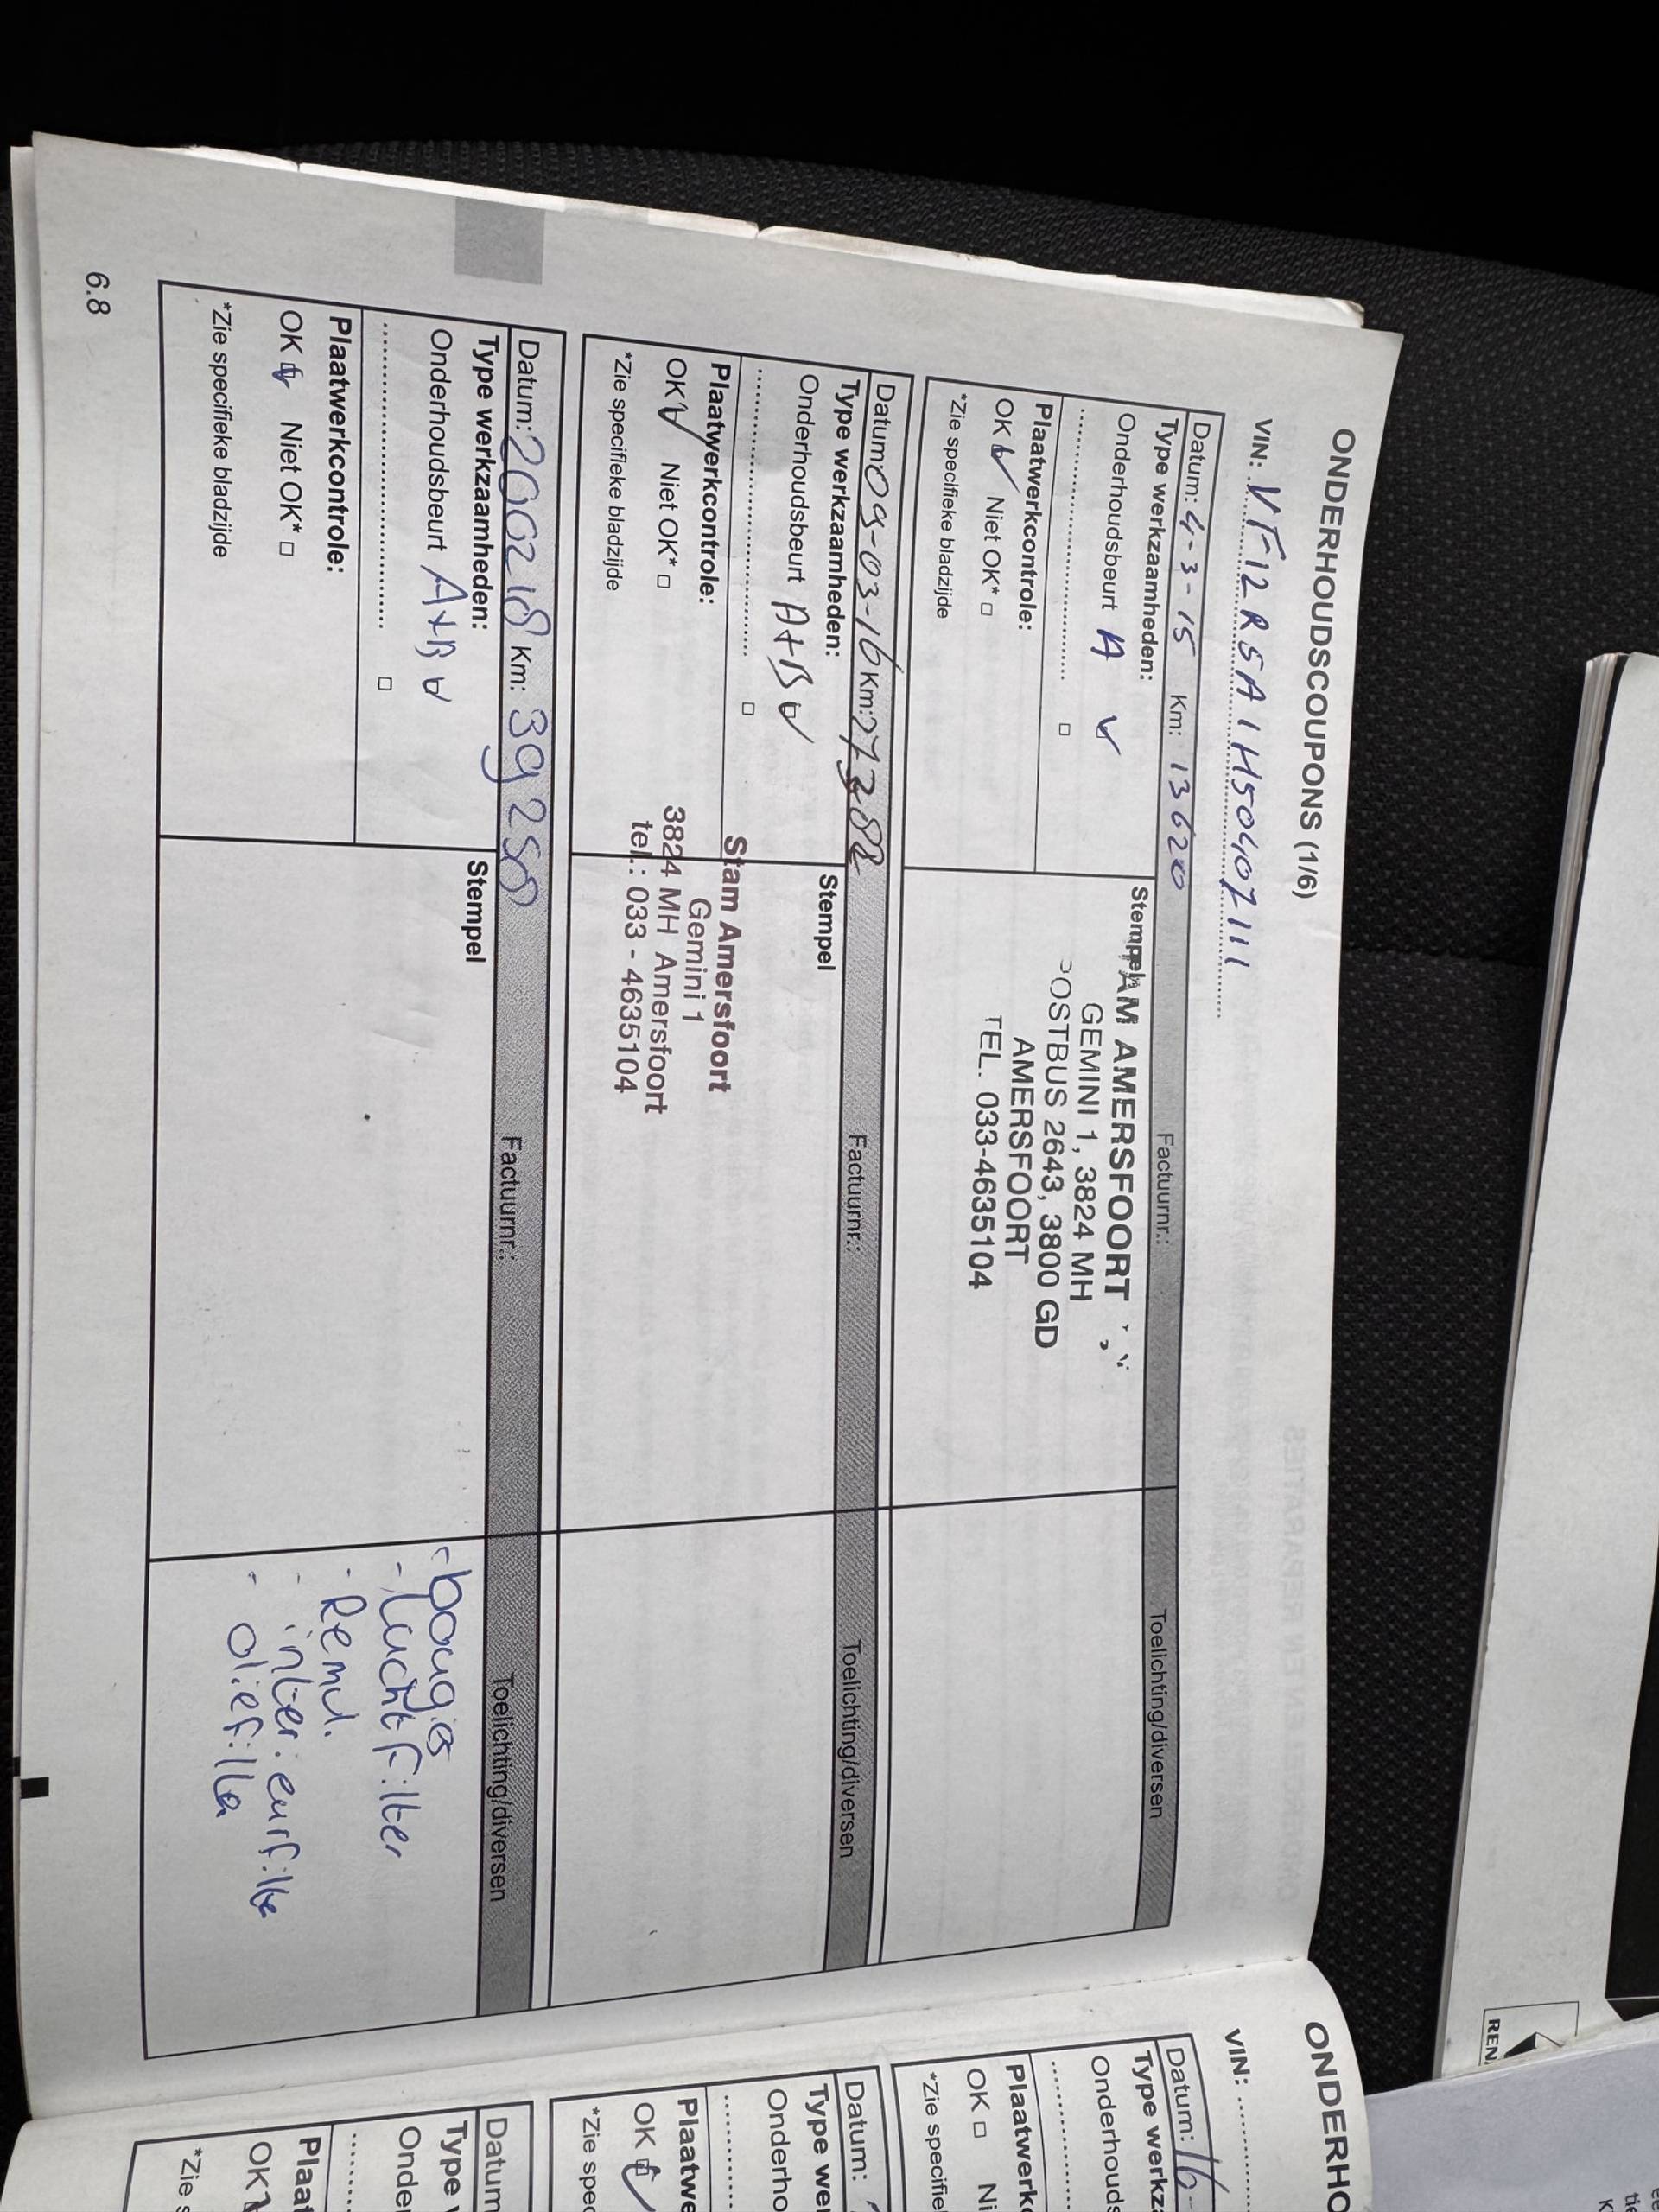 ONDERHOUDSCOUPONS (1/6)
VIN: VF12RSA1H50407111
Datum: 4-3-15 Km: 13620 Factuurnr.: Toelichting/diversen
Type werkzaamheden:
Onderhoudsbeurt A
Plaatwerkcontrole:
OK Niet OK*
*Zie specifieke bladzijde
Stempel
AM AMERSFOORT
GEMINI 1, 3824 MH
OSTBUS 2643, 3800 GD
AMERSFOORT
TEL. 033-4635104
Datum 09-03-16 Km: 27288 Factuurnr.: Toelichting/diversen
Type werkzaamheden:
Onderhoudsbeurt A+B
Plaatwerkcontrole:
OK Niet OK*
*Zie specifieke bladzijde
Stempel
Stam Amersfoort
Gemini 1
3824 MH Amersfoort
tel.: 033 - 4635104
Datum: 200218 Km: 39250 Factuurnr.: Toelichting/diversen
Type werkzaamheden:
Onderhoudsbeurt A+B
Plaatwerkcontrole:
OK Niet OK*
*Zie specifieke bladzijde
Stempel
- bougies
- luchtfilter
- Remvl.
- interieurfilter
- oliefilter
6.8
ONDERHO
VIN:
Datum: 16-
Type werkz
Onderhouds
Plaatwerk
OK Ni
*Zie specifie
Datum:
Type we
Onderho
Plaatwe
OK
*Zie spec
Datum
Type
Onder
Plaat
OK
*Zie s
REN